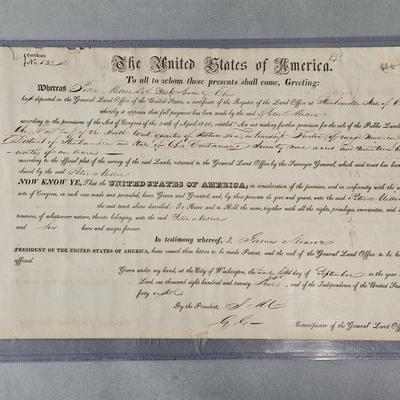 Certificate
The United States of America.
To all to whom these presents shall come, Greeting:
Whereas Peter Miller of Stark County Ohio
has deposited in the General Land Office of the United States, a certificate of the Register of the Land Office at Steubenville
whereby it appears that full payment has been made by the said Peter Miller
according to the provisions of the Act of Congress of the 24th of April, 1820, entitled "An act making further provision for the sale of the Public Lands
half of the South West quarter of Section in township Twelve of range Nine
District of Steubenville and State of Ohio Containing Seventy nine acres and
of an acre
according to the official plat of the survey of the said Lands, returned to the General Land Office by the Surveyor General, which said tract has been
chased by the said Peter Miller
NOW KNOW YE, That the UNITED STATES OF AMERICA, in consideration of the premises, and in conformity with the
acts of Congress, in such case made and provided, have Given and Granted, and, by these presents do give and grant, unto the said Peter Mille
the said tract above described: To Have and to Hold the same, together with all the rights, privileges, immunities, and
tenances, of whatsoever nature, thereto belonging, unto the said Peter Miller
and his heirs and assigns forever.
In testimony whereof, I, James Monroe
PRESIDENT OF THE UNITED STATES OF AMERICA, have caused these letters to be made Patent, and the seal of the General Land Office to be
affixed.
Given under my hand, at the City of Washington, the day of September in the year
Lord, one thousand eight hundred and twenty and of the Independence of the United States
forty eighth
By the President, J. M.
G. G.
Commissioner of the General Land Offi